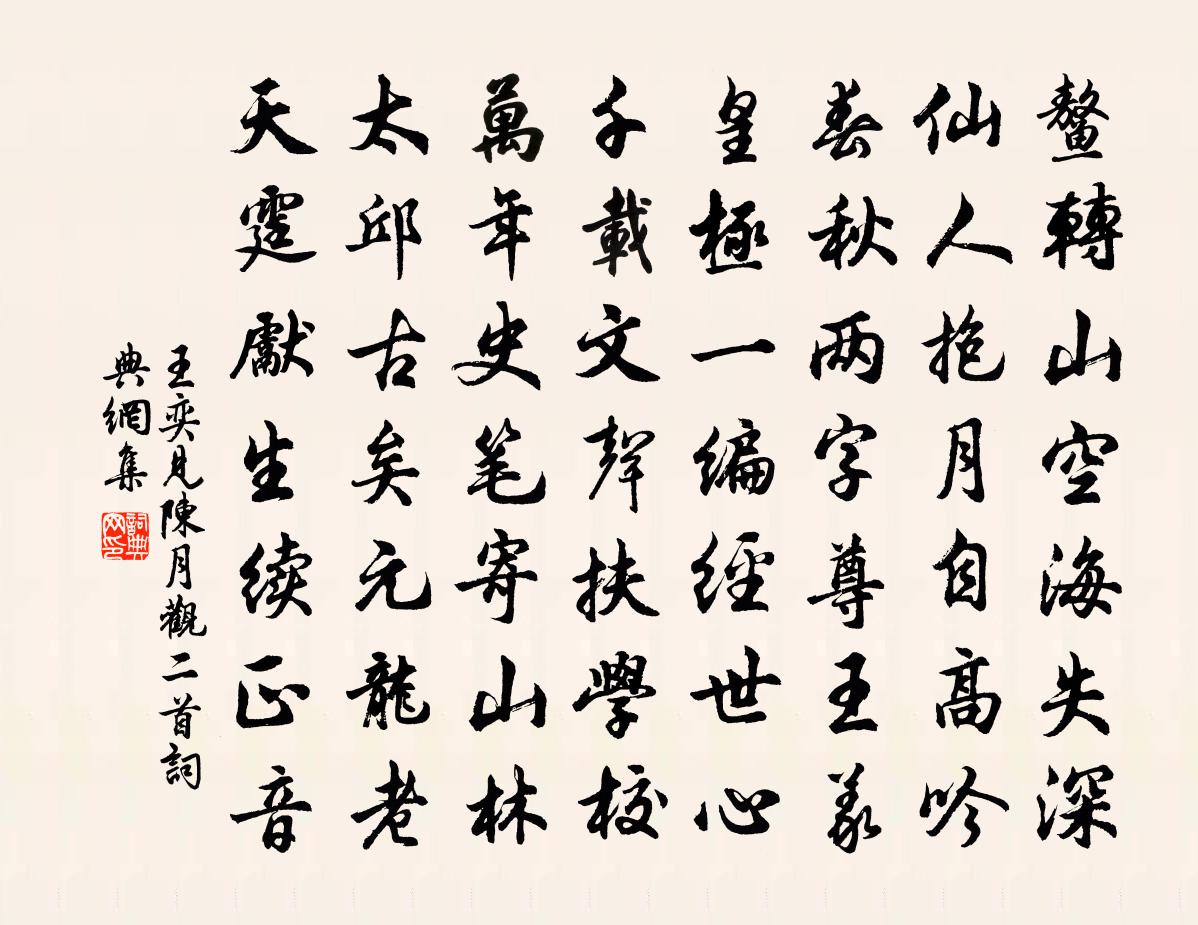 鰲轉山空海失深
仙人抱月自高吟
春秋两字尊王義
皇極一编經世心
千載文聲扶學校
萬年史笔寄山林
太邱古矣元龍老
天霆獻生续正音
王奕見陳月觀二首詞
典網集
詞典
网印